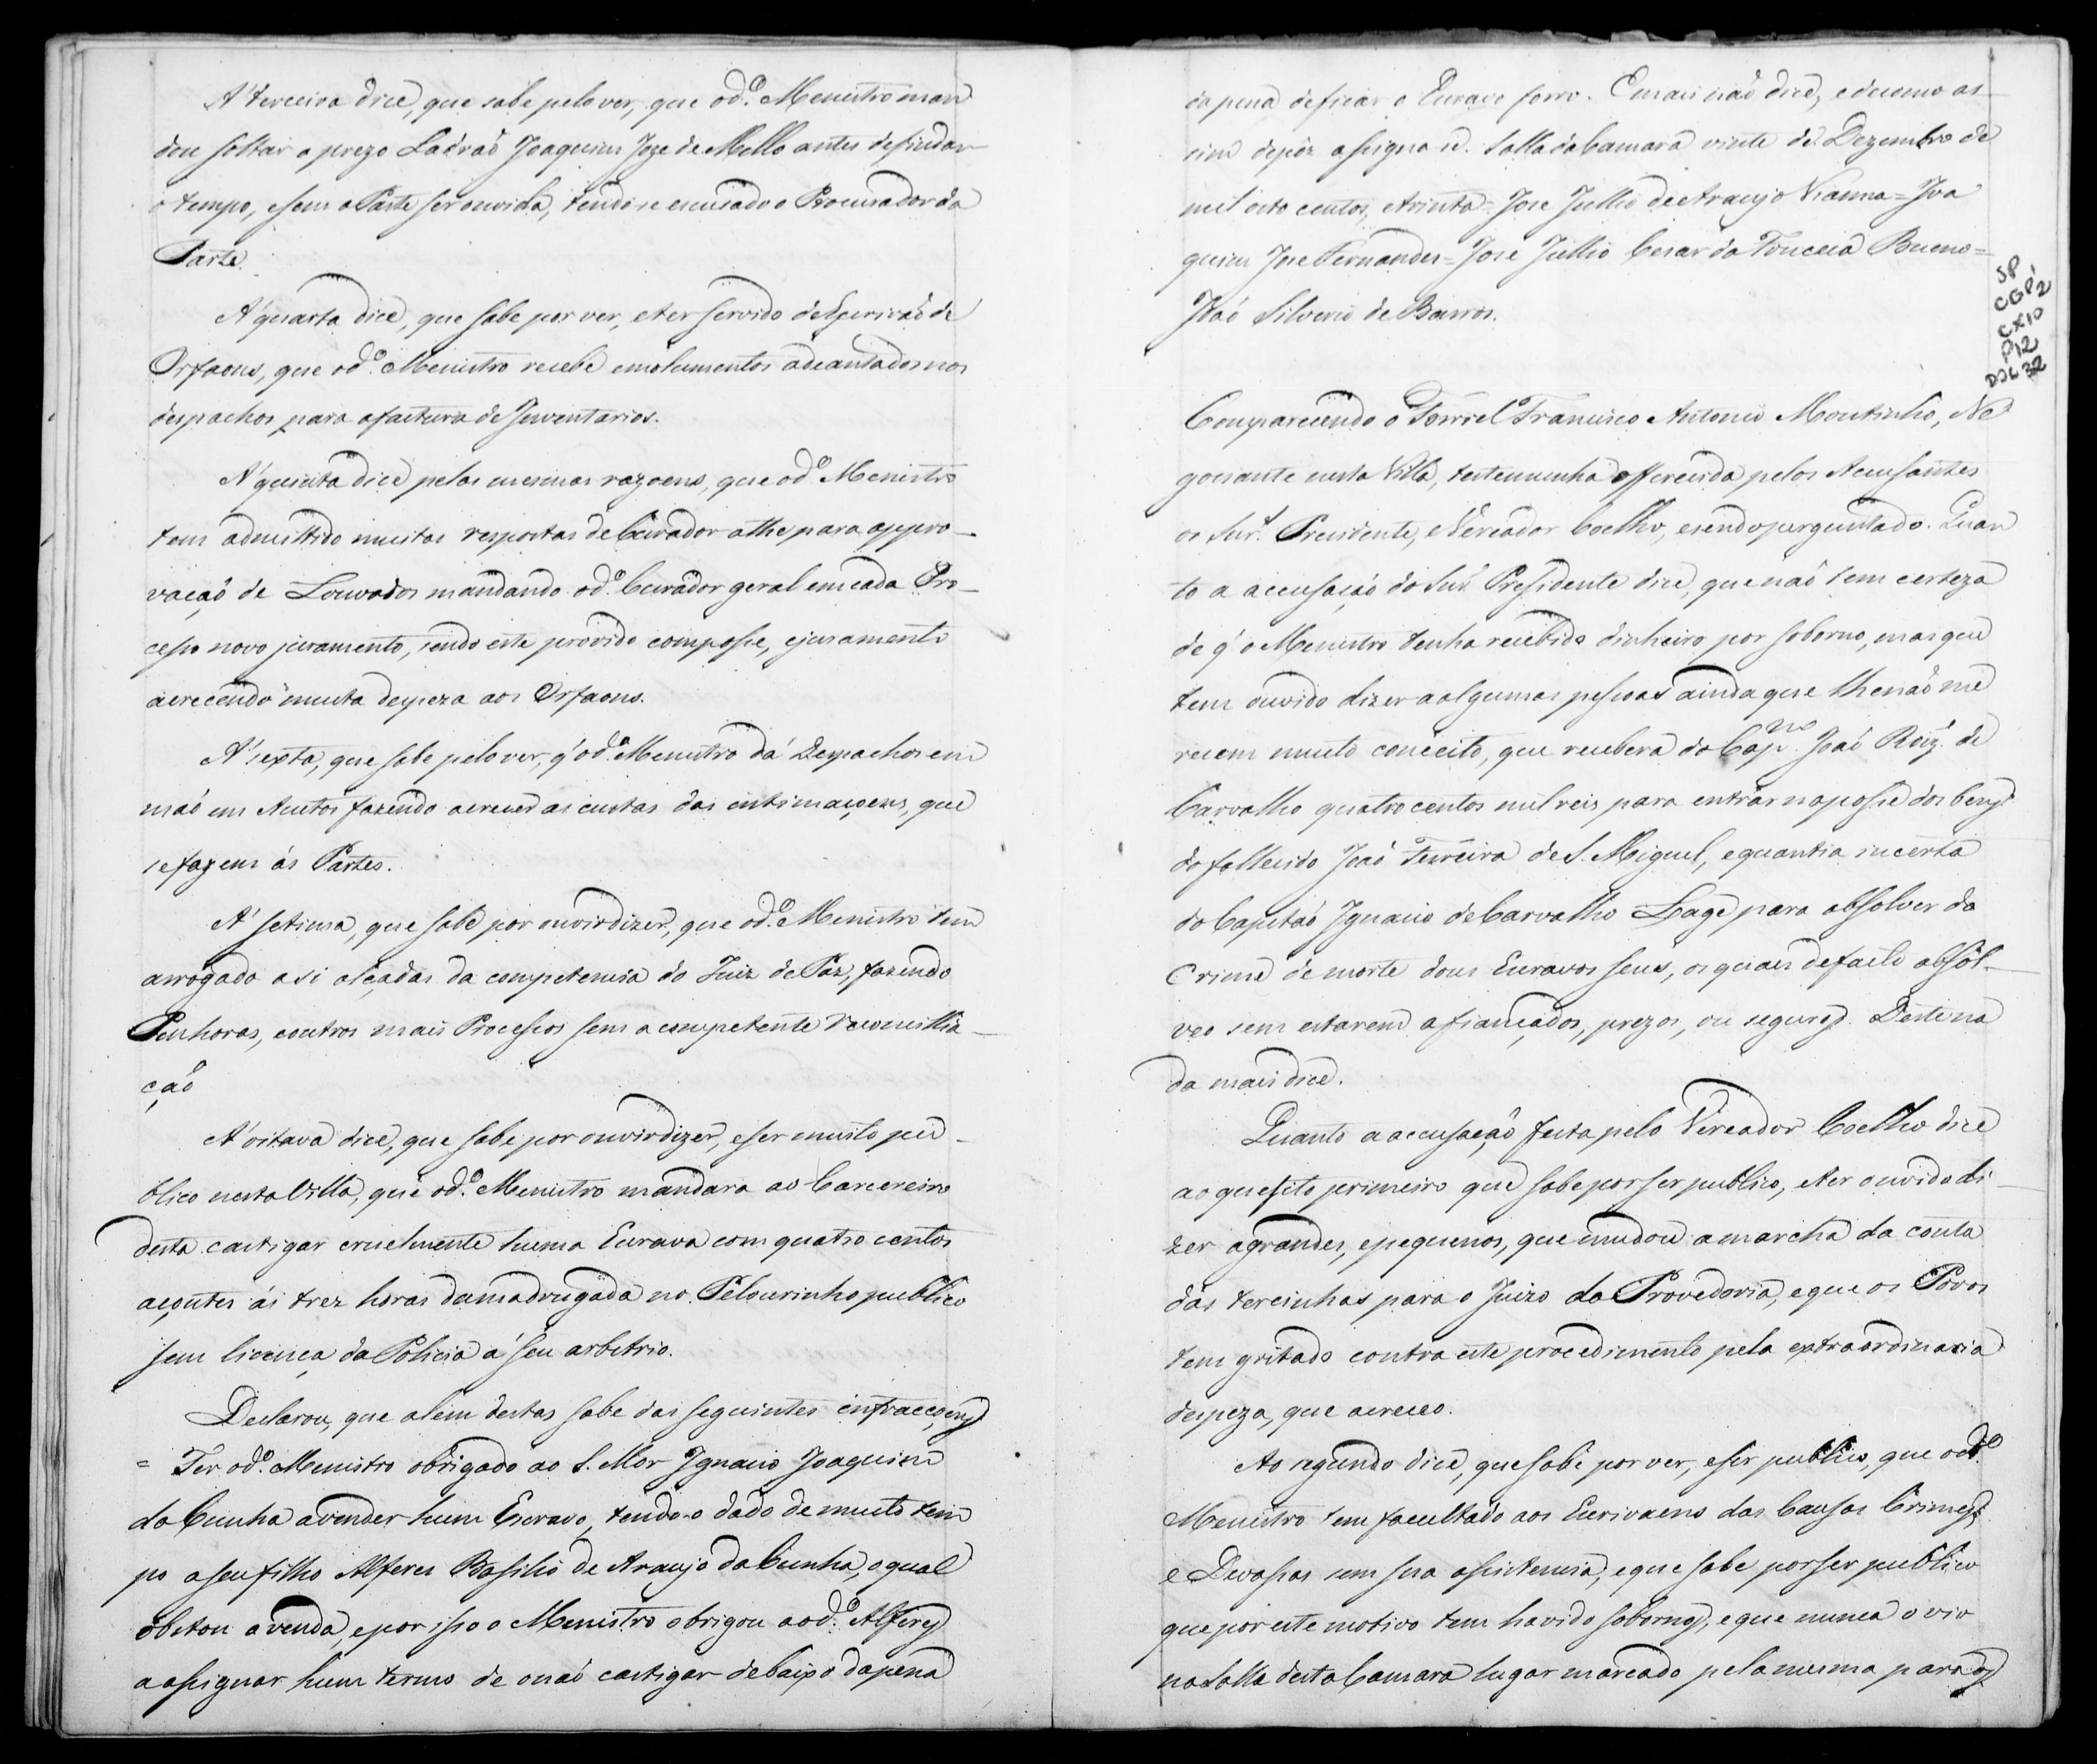 A' terceira dice, que sabe pelo ver, que o d.º Menistro man
dou soltar o prezo Ladraõ Joaquim Joze de Mello antes de findar
o tempo, e sem a Parte ser ouvida, tendo-se escusado o Procurador da
Parte.
A' quarta dice, que sabe por ver, e ter servido de Escrivaõ de
Orfaons, que o d.º Menistro recebe emolumentos adeantados nos
despachos para a factura de Inventarios.
A' quinta dice pelas mesmas razoens, que o d.º Menistro
tem admittido muitas respostas de Curador athe para appro-
vaçaõ de Louvados mandando o d.º Curador geral em cada Pro-
cesso novo juramento, sendo este provido com posse, e juramento
acrecendo muita despeza aos Orfaons.
A' sexta, que sabe pelo ver, q' o d.º Menistro dá Despachos em
maõ em Autos fazendo acrecer as custas das intimaçoens, que
se fazem ás Partes.
A' setima, que sabe por ouvir dizer, que o d.º Menistro tem
arrogado a si alçadas da competencia do Juiz de Paz, fazendo
Penhoras, e outros mais Processos sem a competente reconcillia-
çaõ
A' oitava dice, que sabe por ouvir dizer, e ser muito pu-
blico nesta Villa, que o d.º Menistro mandara ao Carcereiro
desta castigar cruelmente huma Escrava com quatro centos
açoutes ás trez horas da madrugada no Pelourinho publico
sem licença da Policia á seu arbitrio.
Declarou, que alem destas sabe das seguintes infracçoens
= Ter o d.º Menistro obrigado ao S. Mor Ignacio Joaquim
da Cunha a vender hum Escravo, tendo-o dado de muito tem
po a seu filho Alferes Basilio de Araujo da Cunha, o qual
obstou a venda, e por isso o Menistro obrigou ao d.º Alferes
a assignar hum termo de o naõ castigar debaixo da pena
da pena de ficar o Escravo forro. E mais naõ dice, e de como as-
sim depôz assigna-se. Salla da Camara vinte de Dezembro de
mil oito centos, e trinta = Jose Jullio de Araujo Vianna = Joa
quim Jose Fernandes = José Jullio Cesar da Fonceca Bueno =
Joaõ Silverio de Barros.
SP
CGP¹2
CX10
P12
DOC 32
Comparecendo o Francisco Antonio Moutinho, Ne
gociante nesta Villa, testemunha offerecida pelos Acusantes
os Snr.s Presidente, e Vereador Coelho, e sendo perguntado. Quan
to a accusaçaõ do Snr. Presidente dice, que naõ tem certeza
de q' o Menistro tenha recebido dinheiro por soborno, mas que
tem ouvido dizer a algumas pessoas ainda que lhe naõ me
recem muito conceito, que recebera do Cap.m Joaõ Roiz' de
Carvalho quatro centos mil reis para entrar na posse dos bens
do fallecido Joaõ Ferreira de S. Miguel, e quantia incerta
do Capitaõ Ignacio de Carvalho Lage para absolver do
Crime de morte dous Escravos seus, os quais de facto absol-
veo sem estarem afiançados, prezos, ou seguros. Desti na
da mais dice.
Quanto a accusaçaõ feita pelo Vereador Coelho dice
ao quesito primeiro que sabe por ser publico, e ter ouvido di-
zer a grandes, e pequenos, que mudou a marcha da conta
das tercinhas para o Juizo da Provedoria, e que os Povos
tem gritado contra este procedimento pela extraordinaria
despeza, que acreceo.
Ao segundo dice, que sabe por ver, e ser publico, que o d.º
Menistro tem facultado aos Escrivaens das Causas Crimes,
e Devassas sem sua assistencia, e que sabe por ser publico
que por este motivo tem havido sobornos, e que nunca o vio
na Salla desta Camara lugar marcado pela mesma para os